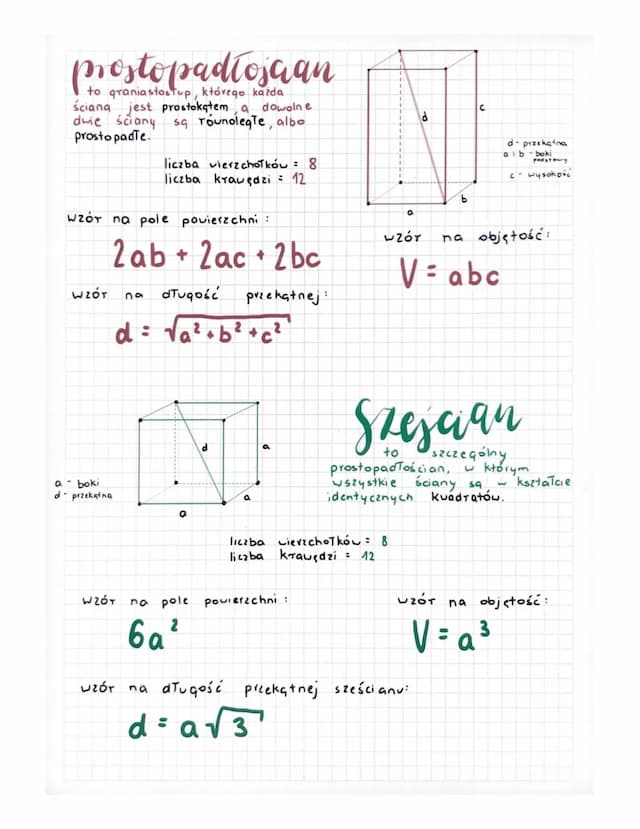 prostopadłościan
to graniastosłup, którego każda
ściana jest prostokątem, a dowolne
dwie ściany są równoległe, albo
prostopadłe.
liczba wierzchołków = 8
liczba krawędzi = 12
d
c
b
a
d - przekątna
a i b - boki
podstawy
c - wysokość
wzór na pole powierzchni:
2ab + 2ac + 2bc
wzór na objętość:
V = abc
wzór na długość przekątnej:
d = √a² + b² + c²
d
a
a
a
a - boki
d - przekątna
Sześcian
to szczególny
prostopadłościan, w którym
wszystkie ściany są w kształcie
identycznych kwadratów.
liczba wierzchołków = 8
liczba krawędzi = 12
wzór na pole powierzchni:
6a²
wzór na objętość:
V = a³
wzór na długość przekątnej sześcianu:
d = a√3